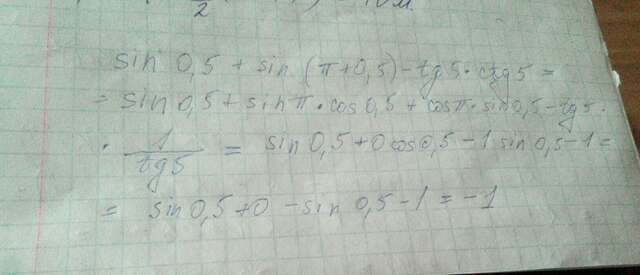 2
sin 0,5 + sin (π+0,5) - tg5 · ctg5 =
= sin 0,5 + sin π · cos 0,5 + cos π · sin 0,5 - tg5 ·
· 1/tg5 = sin 0,5 + 0 cos 0,5 - 1 sin 0,5 - 1 =
= sin 0,5 + 0 - sin 0,5 - 1 = -1